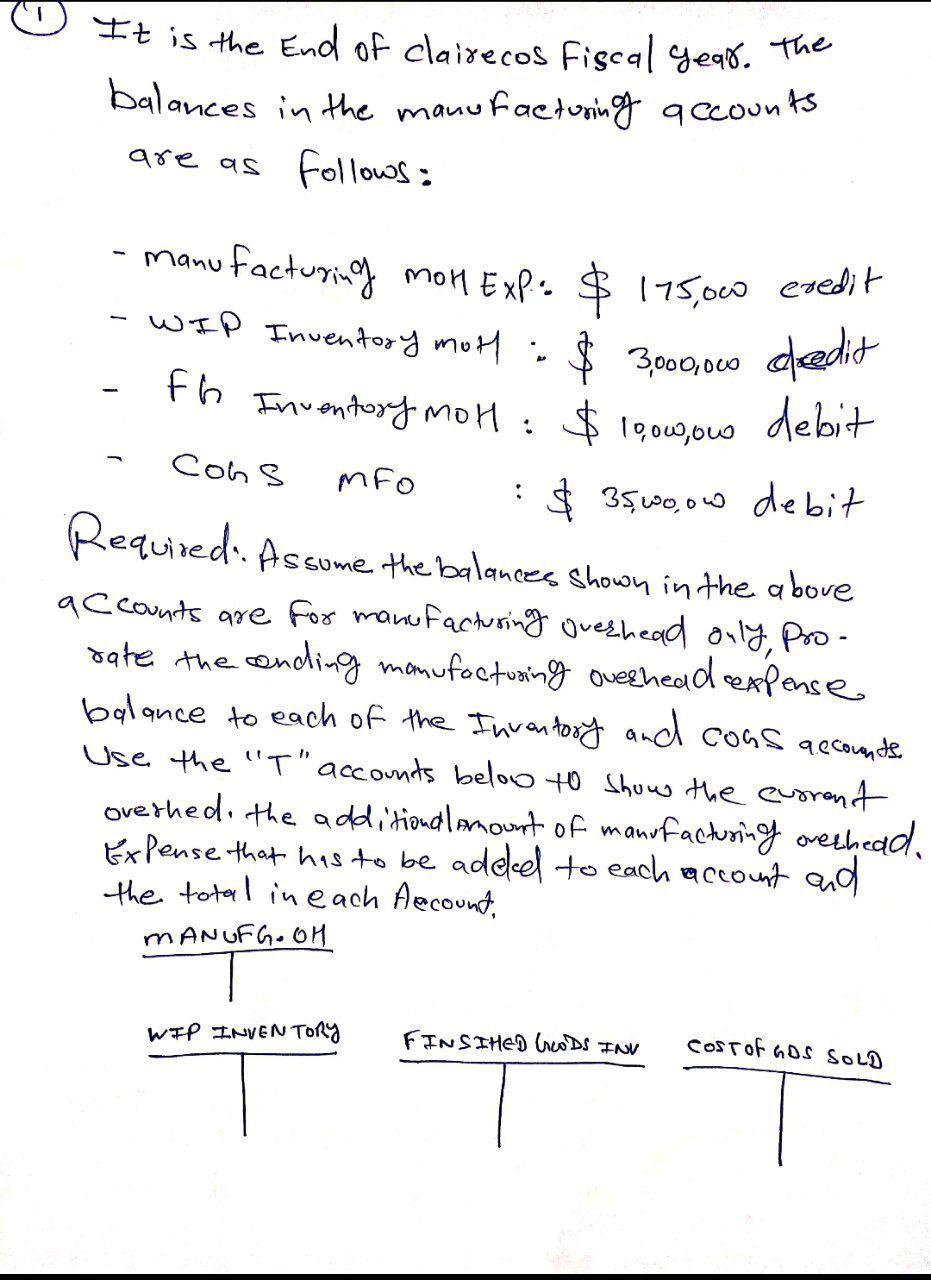 1 It is the End of clairecos Fiscal year. The
balances in the manufacturing accounts
are as follows:
- manufacturing MOH EXP: $ 175,000 credit
- WIP Inventory MOH : $ 3,000,000
- FG Inventory MOH : $ 10,000,000 debit
- COGS MFO : $ 35,000,000 debit
Required: Assume the balances shown in the above
accounts are for manufacturing overhead only, pro-
rate the ending manufacturing overhead expense
balance to each of the Inventory and COGS accounts.
Use the "T" accounts below to show the current
overhed. the additional amount of manufacturing overhead.
Expense that has to be added to each account and
the total in each Account.
MANUFG. OH
WIP INVENTORY FINSIHED GOODS INV COST OF GDS SOLD